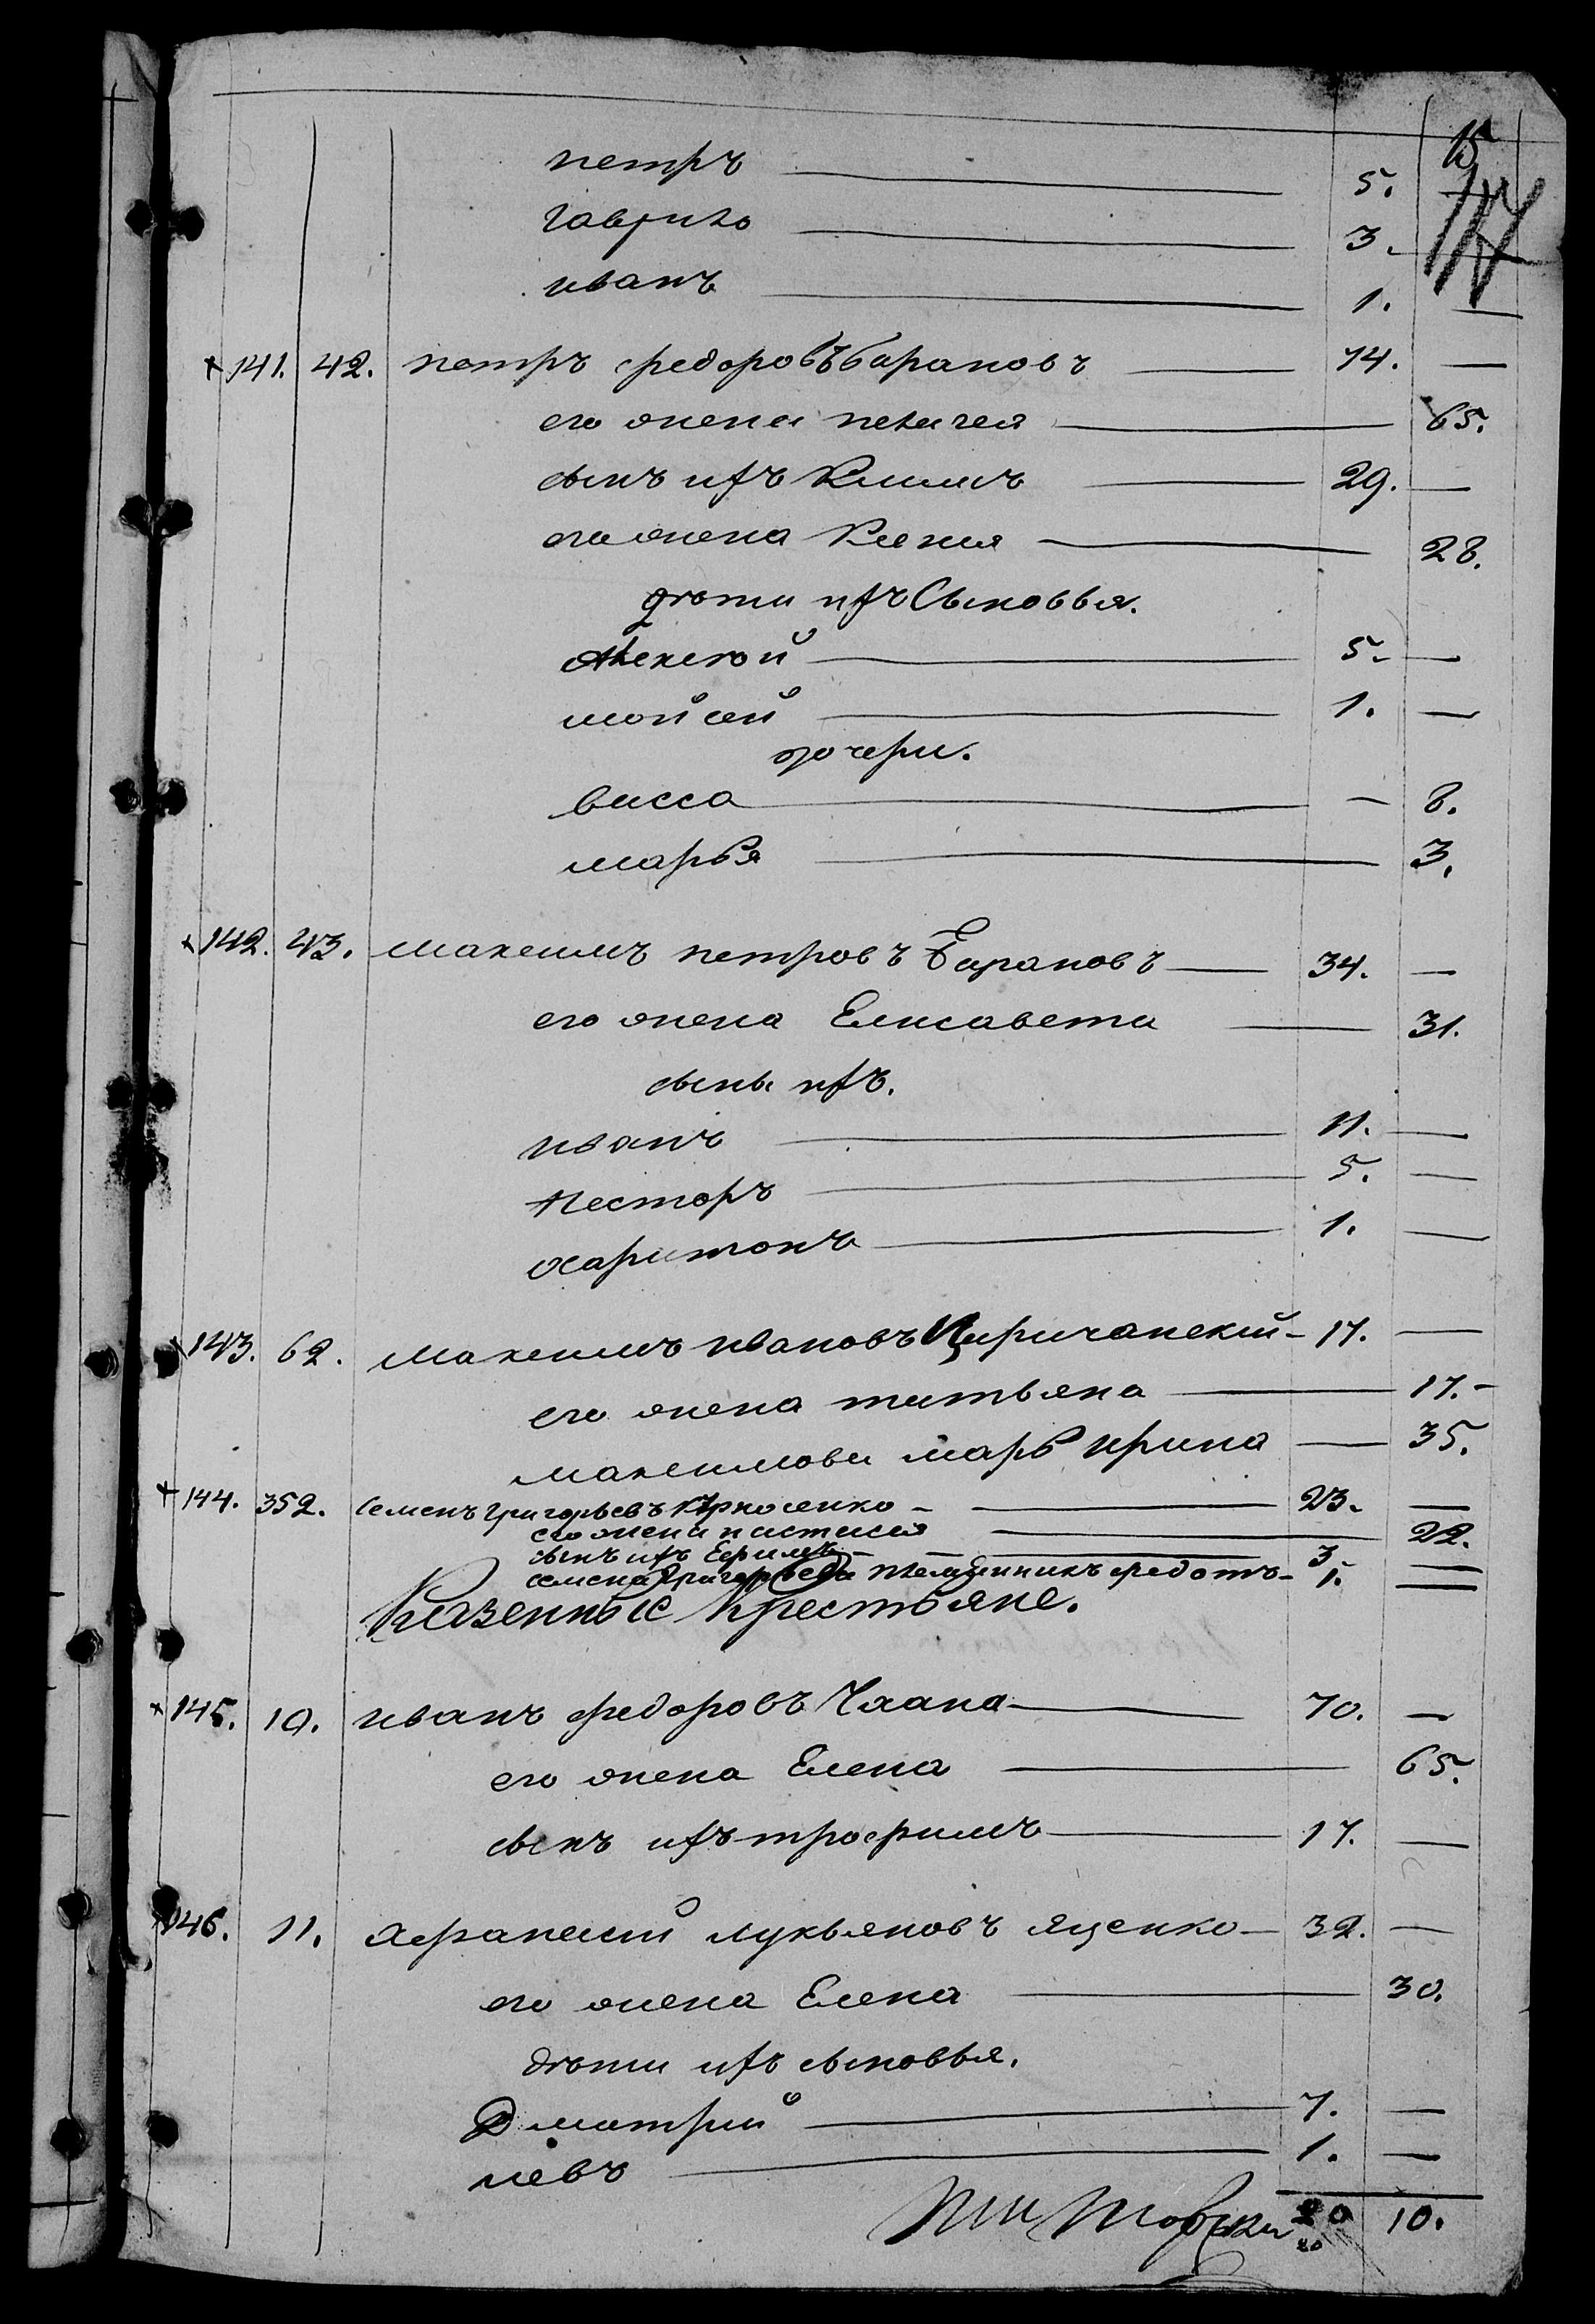 15
петръ 5.
гаврило 3. —
иванъ 1. —
+ 141. 42. петръ федоровъ барановъ 74. —
его жена пелагея 65.
сынъ ихъ Климъ 29. —
его жена Ксенія 28.
дѣти ихъ Сыновья.
Алексѣй 5. —
мойсей 1. —
дочери.
васса — 8.
марья 3.
+ 142. 43. максимъ петровъ Барановъ 34. —
его жена Елисавета 31.
сыны ихъ.
иванъ 11. —
Несторъ 5. —
харитонъ 1. —
+ 143. 62. Максимъ ивановъ Царичанскій 17. —
его жена татьяна 17. —
максимова мать ирина 35.
+ 144. 352. Семенъ григорьевъ Кирносенко 23. —
его жена настасія 22.
сынъ ихъ Ефимъ 3 —
семена Григорьева племянникъ федотъ 1. —
Казенные Крестьяне.
+ 145. 10. иванъ федоровъ Чхана 70. —
его жена Елена 65.
сынъ ихъ трофимъ 17. —
146. 11. афанасій лукьяновъ яценко 32. —
его жена Елена 30.
дѣти ихъ сыновья.
Дматрій 7. —
левъ 1. —
20 10.
20